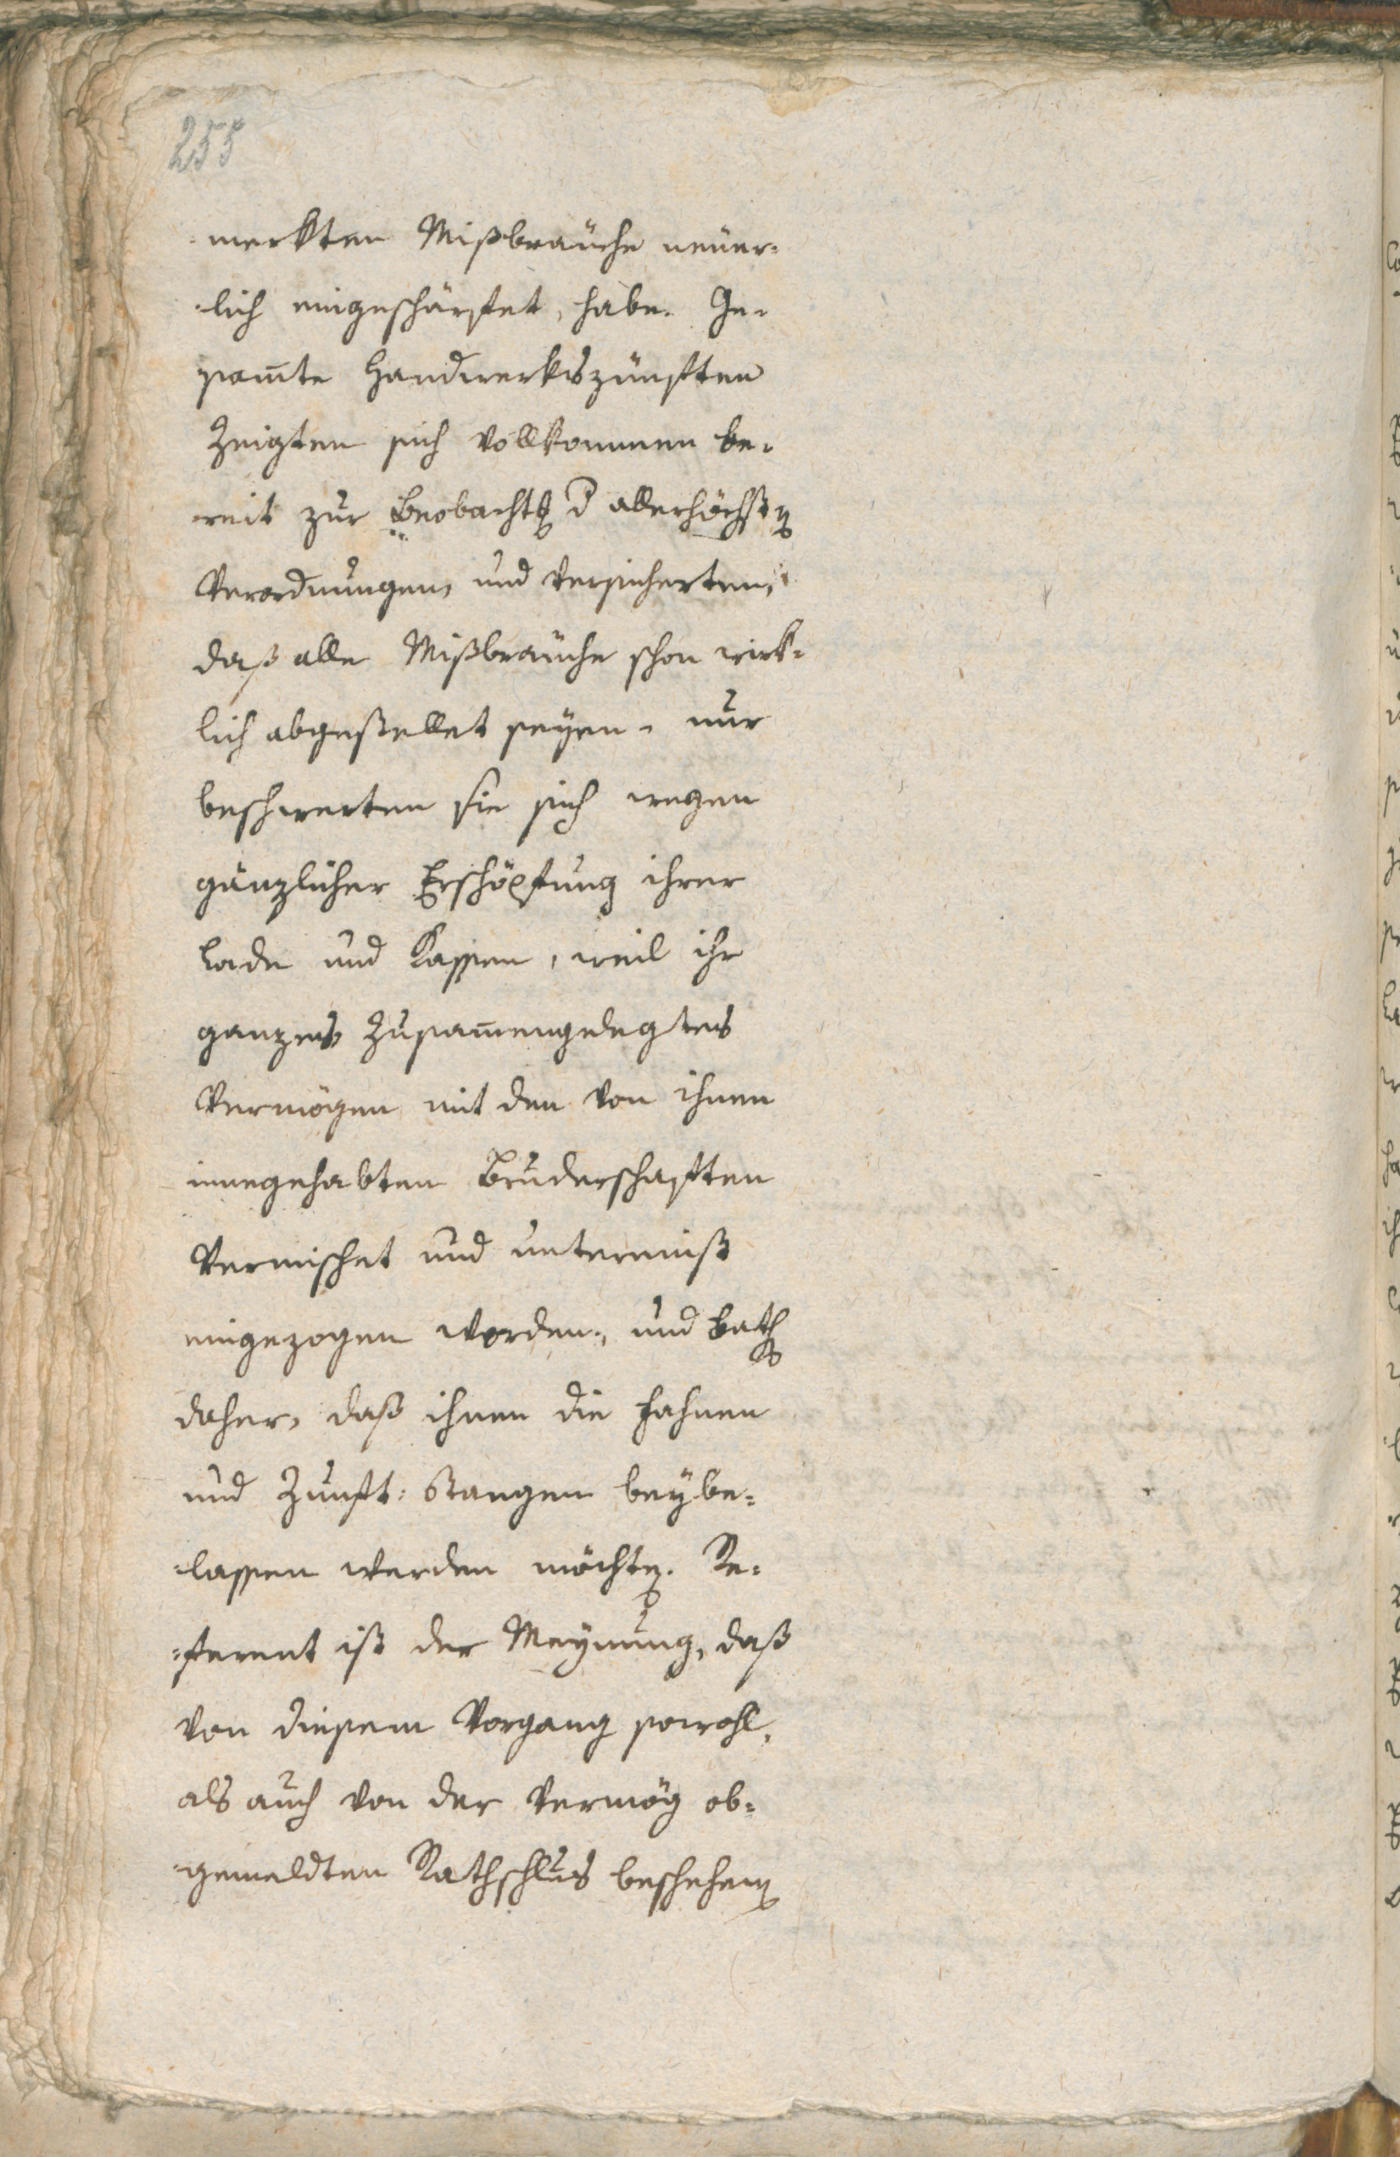 255
merkten Mißbräuche neuer-
lich eingeschärfet, habe. Ge-
sam̄te Handwerkszünften
Zeigten sich vollkommen be-
reit zur Beobachtg d allerhöchsten
Verordnungen, und versicherten,
daß alle Mißbräuche schon wirk-
lich abgestellet seyen. nur
beschwerten sie sich wegen
gänzlicher Erschöpfung ihrer
Lade und Kassen, weil ihr
ganzes Zusam̄engelegtes
Vermögen mit den von ihnen
innegehabten Bruderschaften
Vermischet und untereinst
eingezogen worden, und bath
daher, daß ihnen die Fahnen
und Zunft: Stangen beybe-
lassen werden möchten. Re-
ferent ist der Meynung, daß
von diesem Vorgang sowohl,
als auch von der Vermög ob-
gemeldten Rathschlus beschehenen